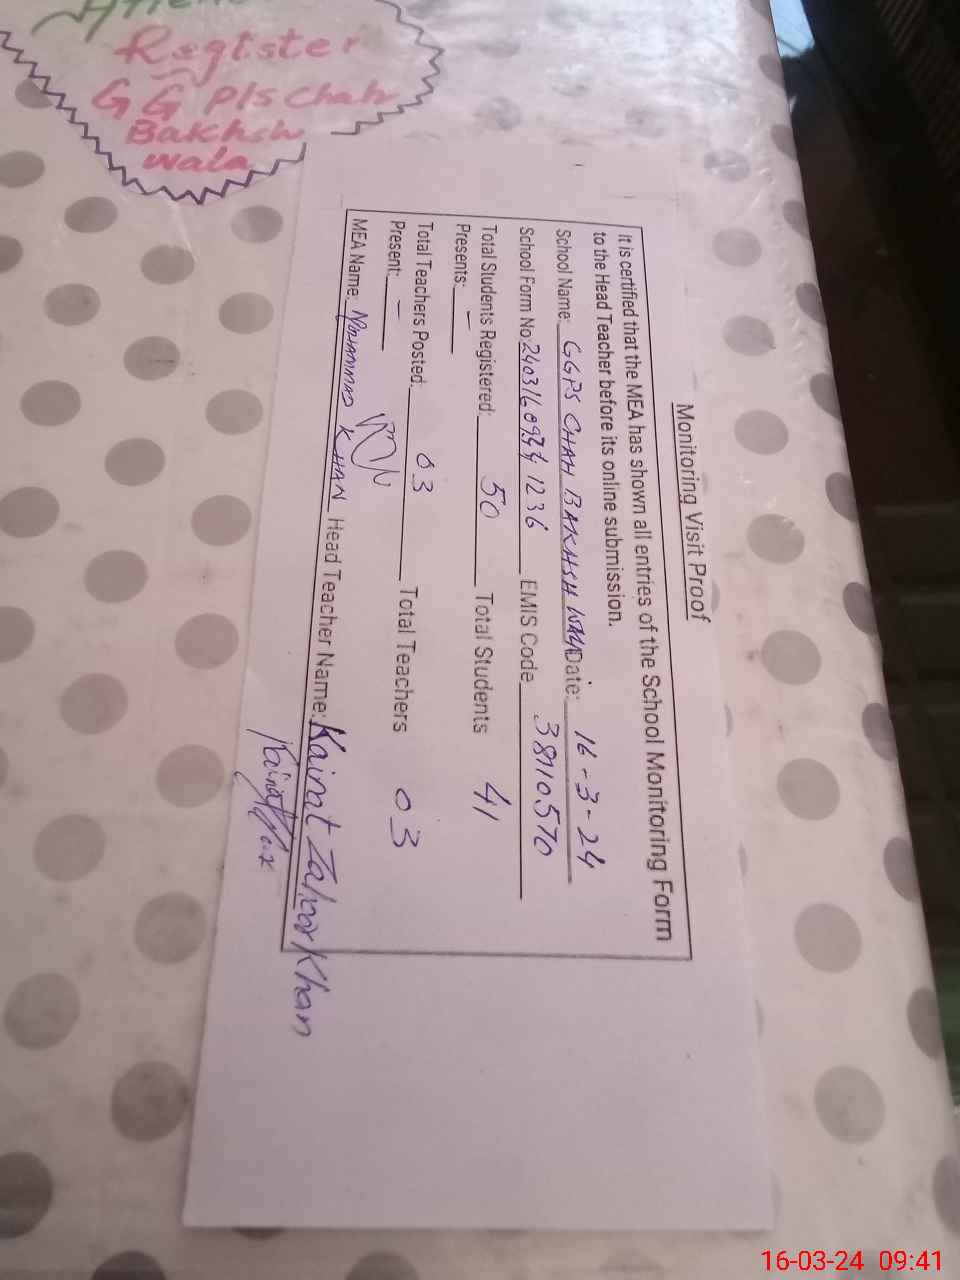 Register
G G P/S Chah
Bakhsh
Wala
Monitoring Visit Proof
It is certified that the MEA has shown all entries of the School Monitoring Form
to the Head Teacher before its online submission.
School Name: GGPS CHAH BAKHSH WALA Date: 16-3-24
School Form No 1236 EMIS Code 38110570
Total Students Registered: 50 Total Students 41
Presents: -
Total Teachers Posted: 03 Total Teachers 03
Present: -
MEA Name: MOHAMMAD KHAN Head Teacher Name: Kainat Zahoor Khan
16-03-24 09:41